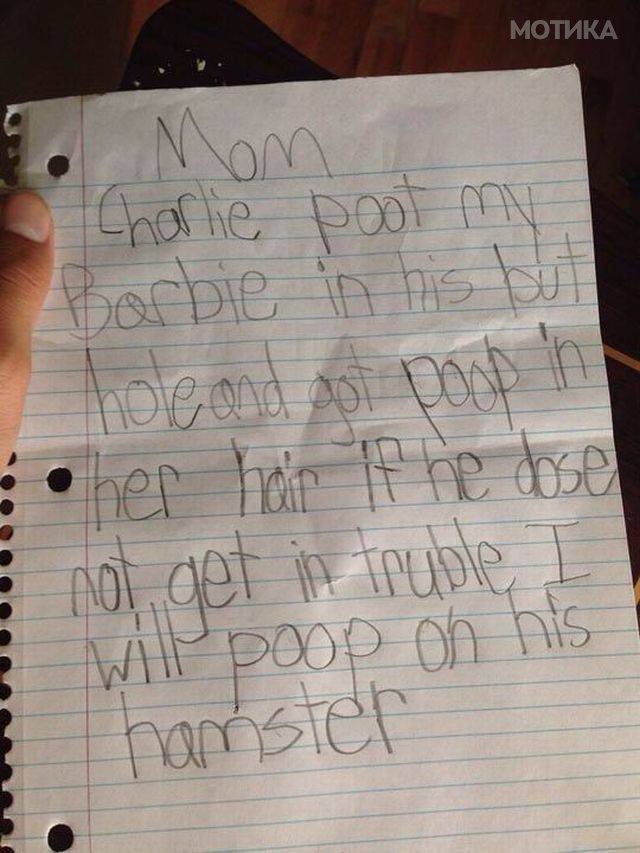 МОТИКА
Mom
Charlie poot my
Barbie in his but
hole and got poop in
her hair if he dose
not get in truble I
will poop on his
hamster